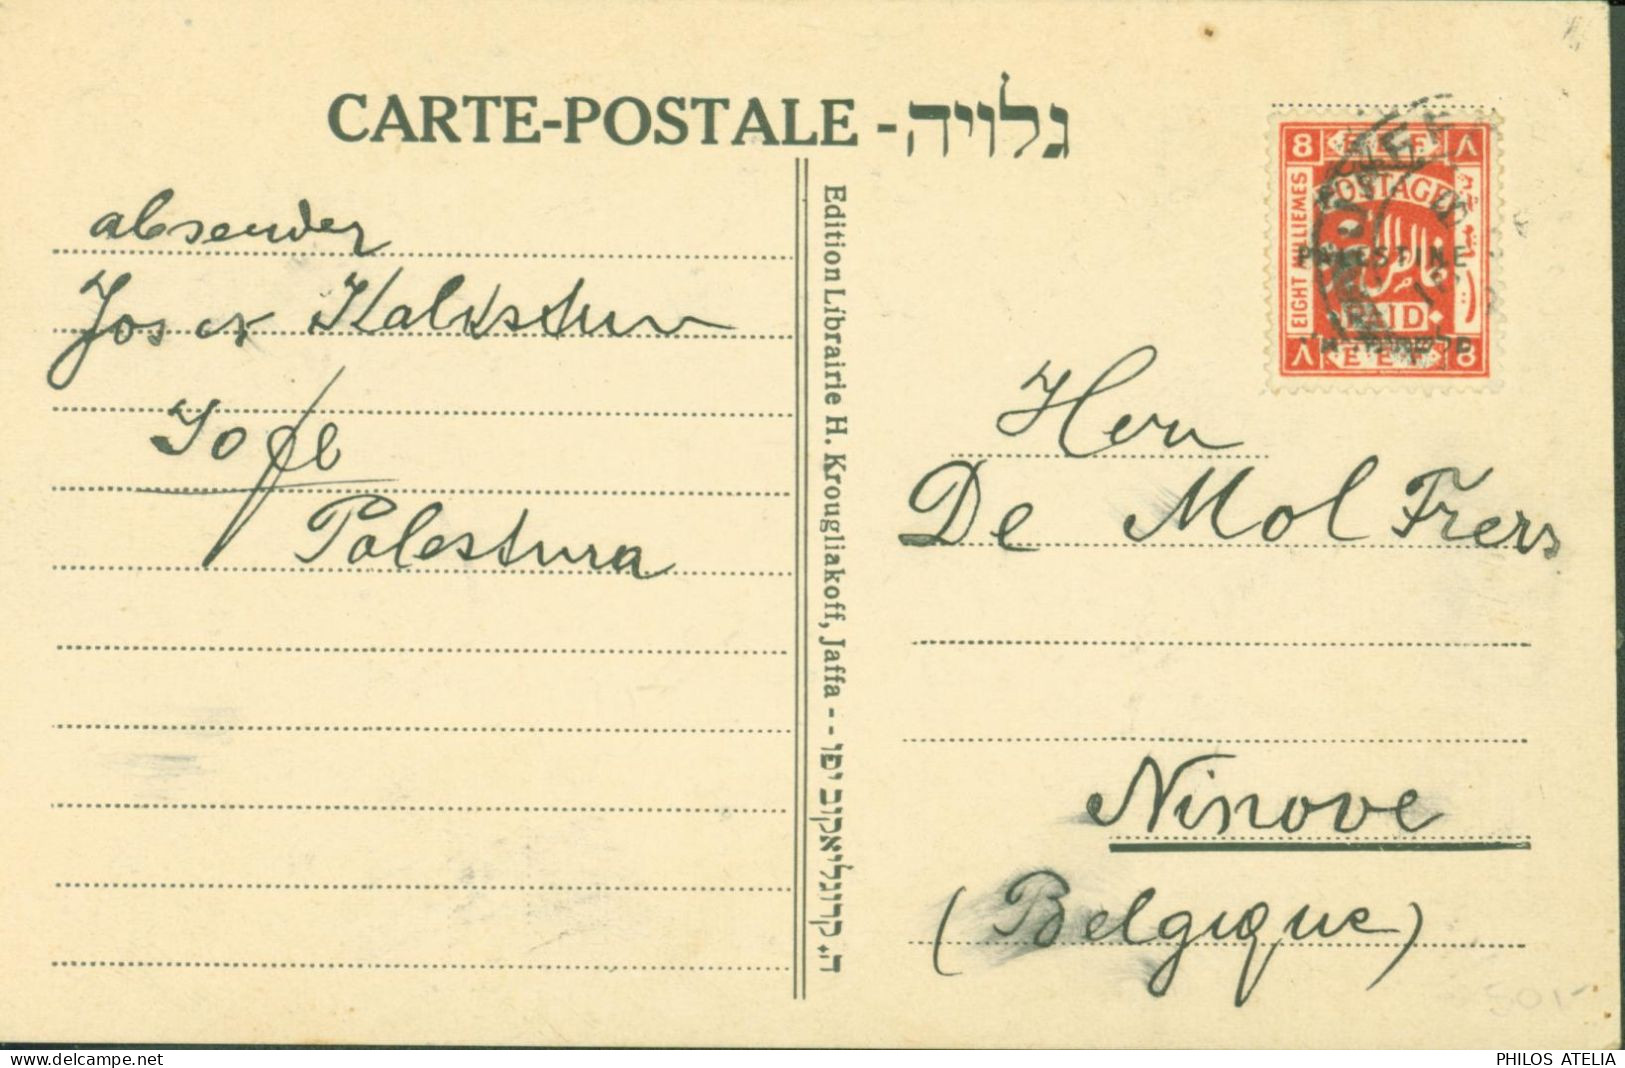 CARTE-POSTALE - גלויה
absender
Josef Kalkstein
Jofe
Palestina
Edition Librairie H. Krougliakoff, Jaffa - - ה. קרוגליאקוב יפו
8 E.E.F. ٨
EIGHT MILLIEMES
POSTAGE
PALESTINE
PAID
٨ E.E.F. 8
Herrn
De Mol Frers
Ninove
(Belgique)
PHILOS ATELIA